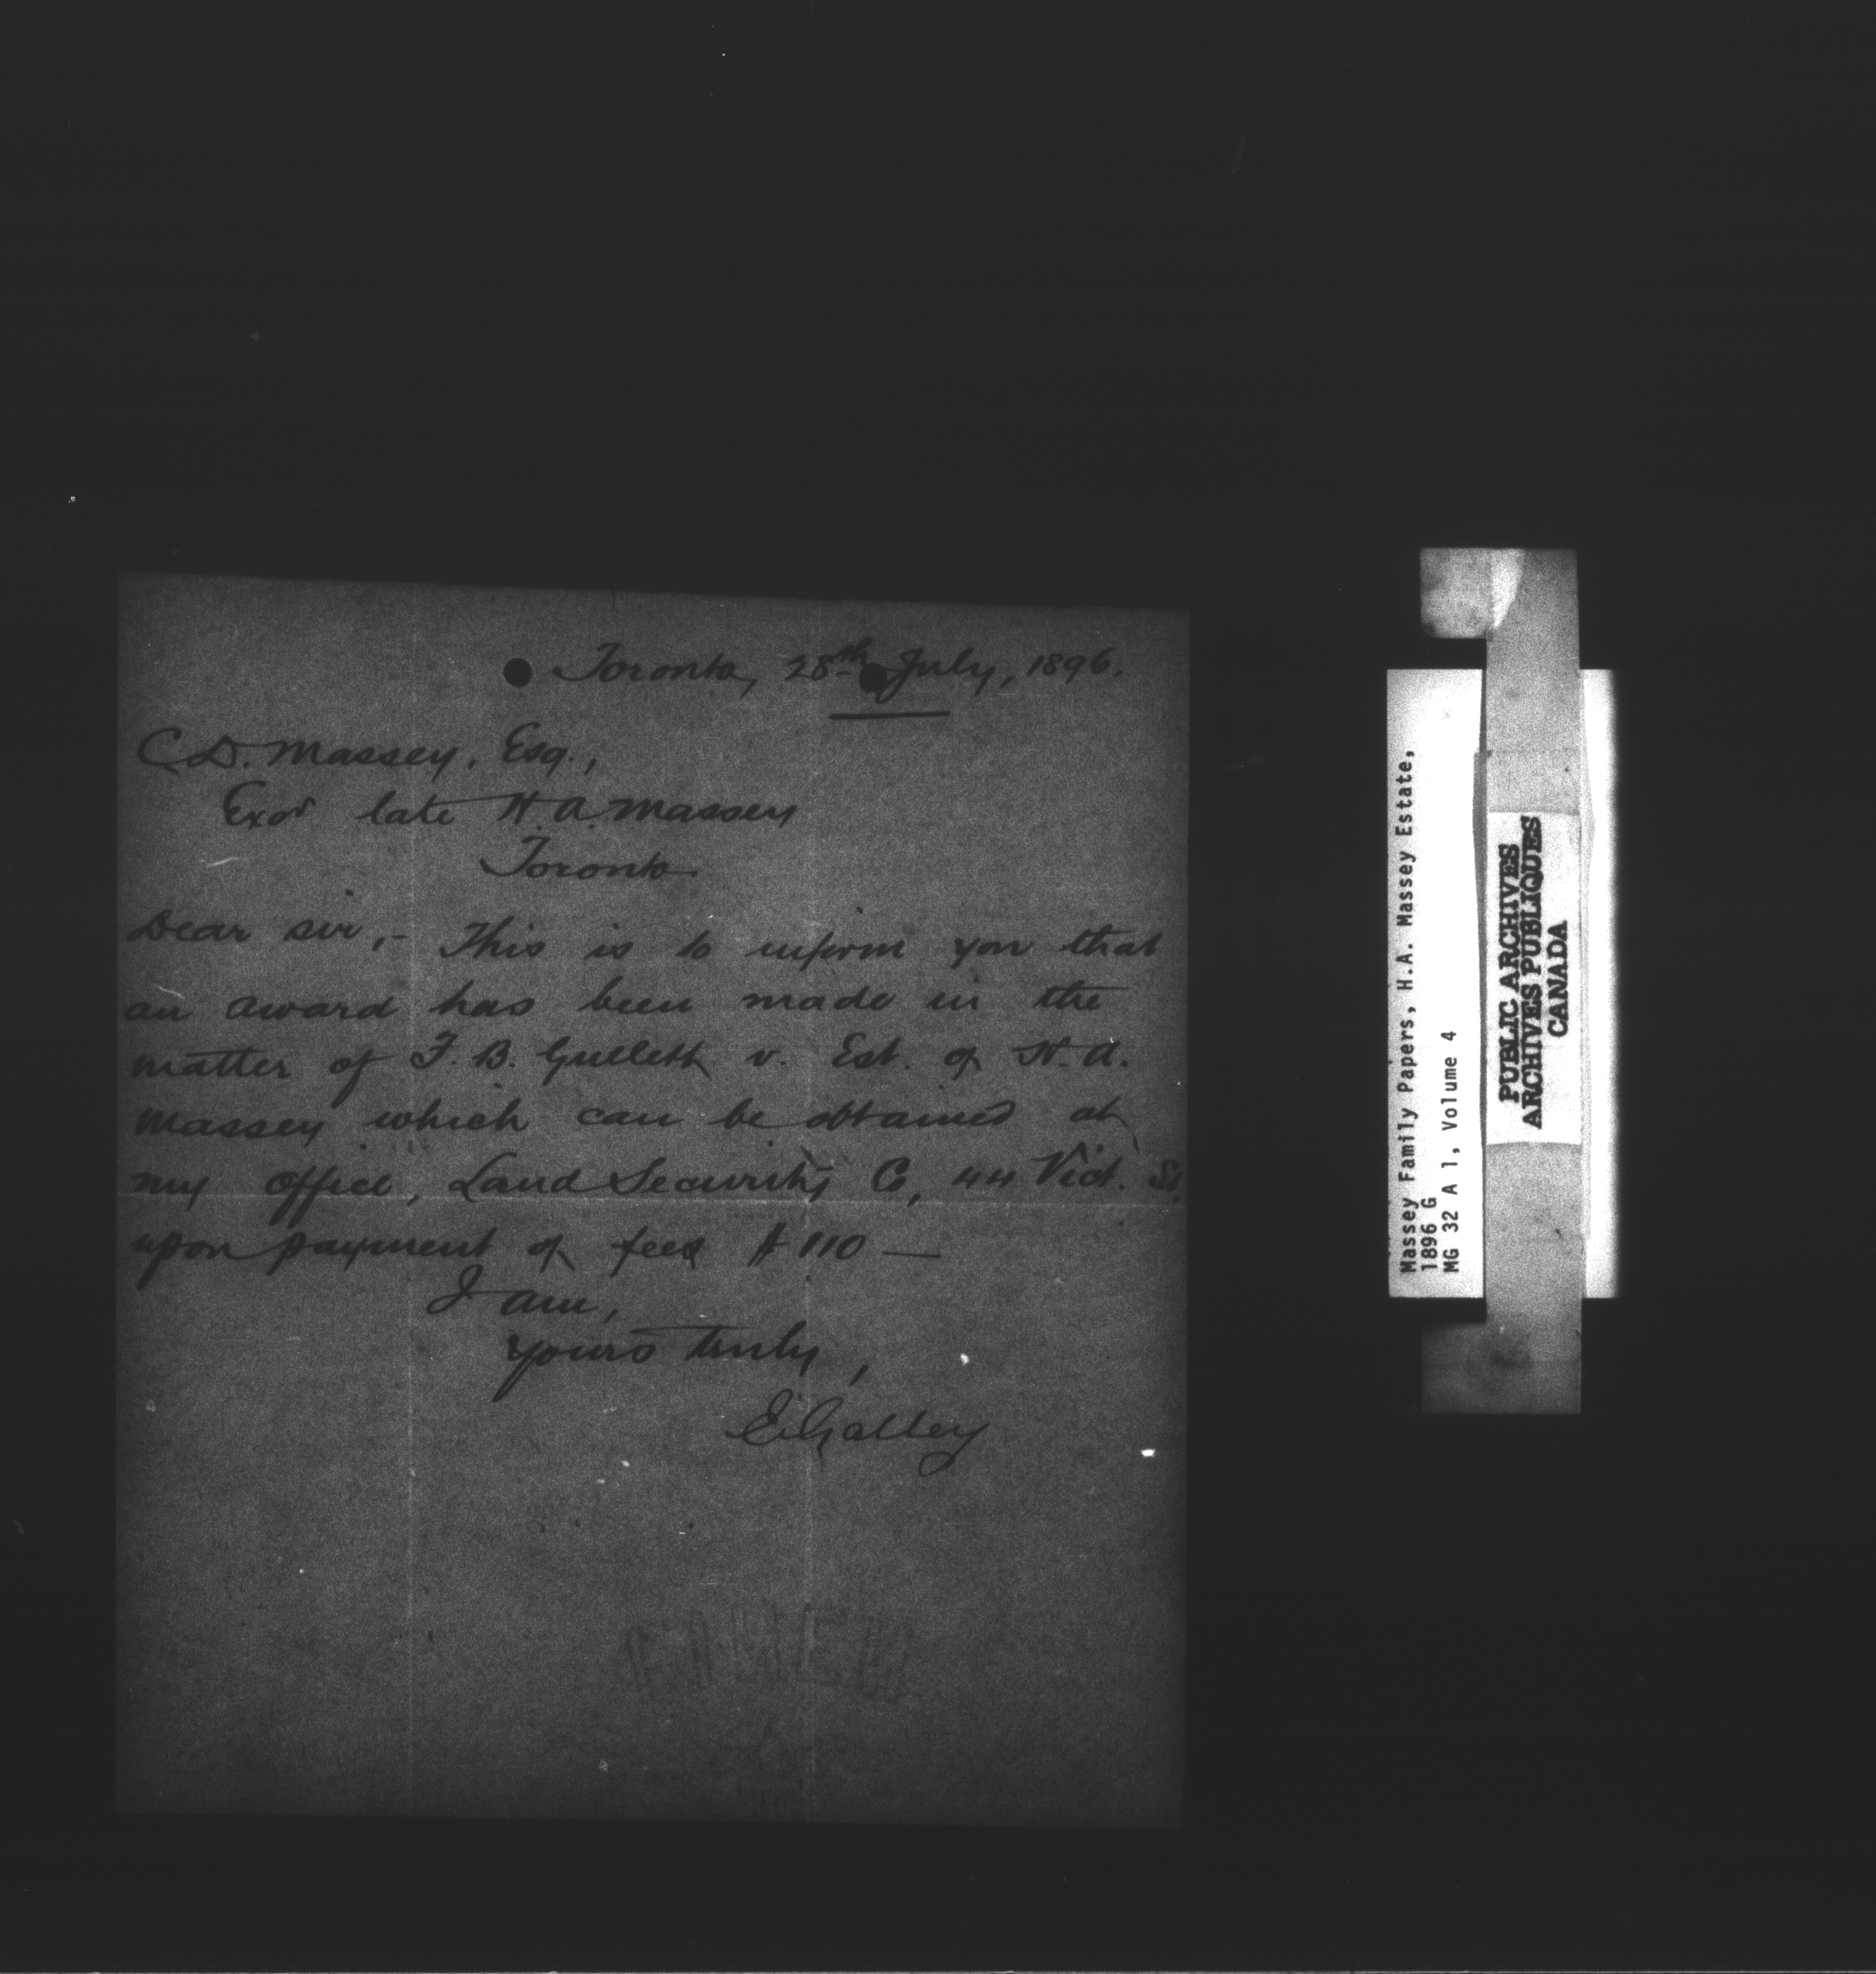 Toronto, 28th July, 1896.
C.D. Massey, Esq.,
Exor late H.A. Massey
Toronto.
Dear sir,- This is to inform you that
an award has been made in the
matter of F. B. Gullett v. Est. of H. A.
Massey which can be obtained at
my office, Land Security Co, 44 Vict. St.
upon payment of fees $110 —
I am,
yours truly,
E. Galley
Massey Family Papers, H.A. Massey Estate,
1896 G
MG 32 A 1, Volume 4
PUBLIC ARCHIVES
ARCHIVES PUBLIQUES
CANADA